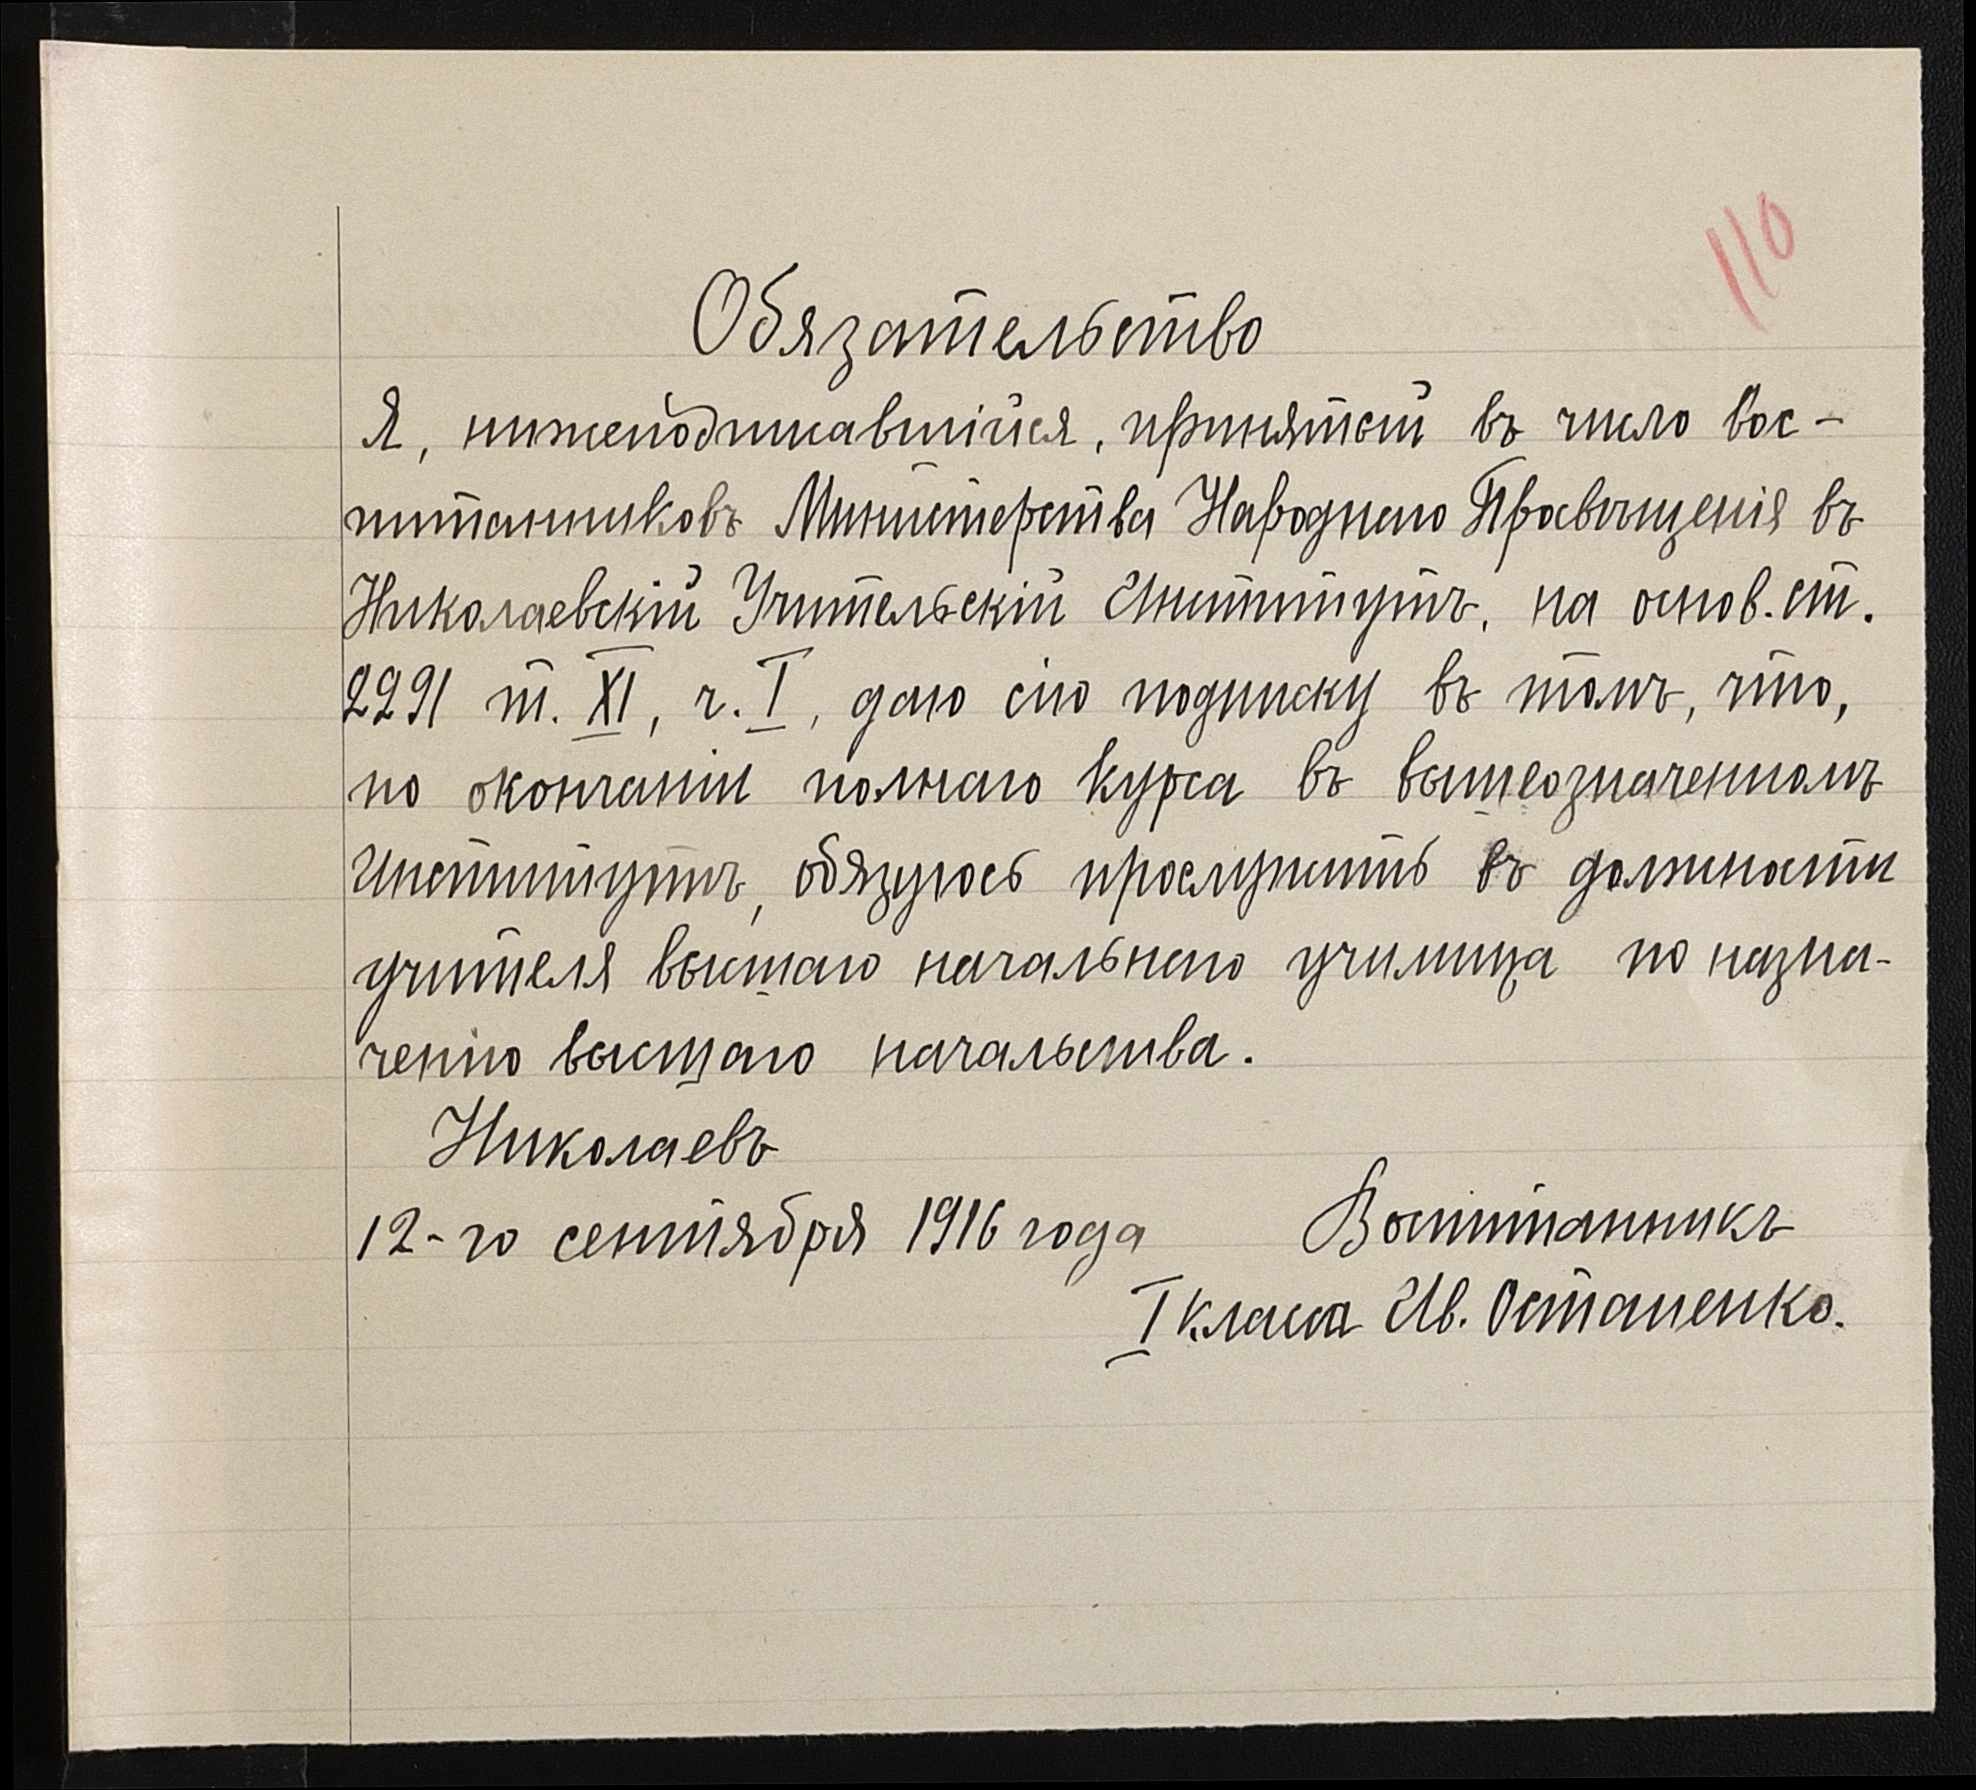 110
Обязательство
Я, нижеподписавшійся, принятый въ число вос-
питанниковъ Министерства Народнаго Просвѣщенія въ
Николаевскій Учительскій Институтъ, на основ. ст.
2291 т. XI, ч. I, даю сію подписку въ томъ, что,
по окончаніи полнаго курса въ вышеозначенномъ
Институтѣ, обязуюсь прослужить въ должности
учителя высшаго начальнаго училища по назна-
ченію высшаго начальства.
Николаевъ
12-го сентября 1916 года
Воспитанникъ
I класса Ив. Остапенко.